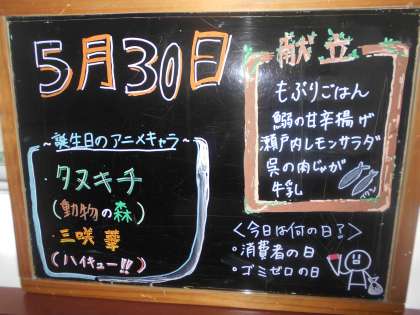 5月30日
献立
もぶりごはん
鰯の甘辛揚げ
瀬戸内レモンサラダ
呉の肉じゃが
牛乳
~誕生日のアニメキャラ~
タヌキチ
(動物の森)
・三咲 華
(ハイキュー!!)
<今日は何の日?>
・消費者の日
・ゴミゼロの日